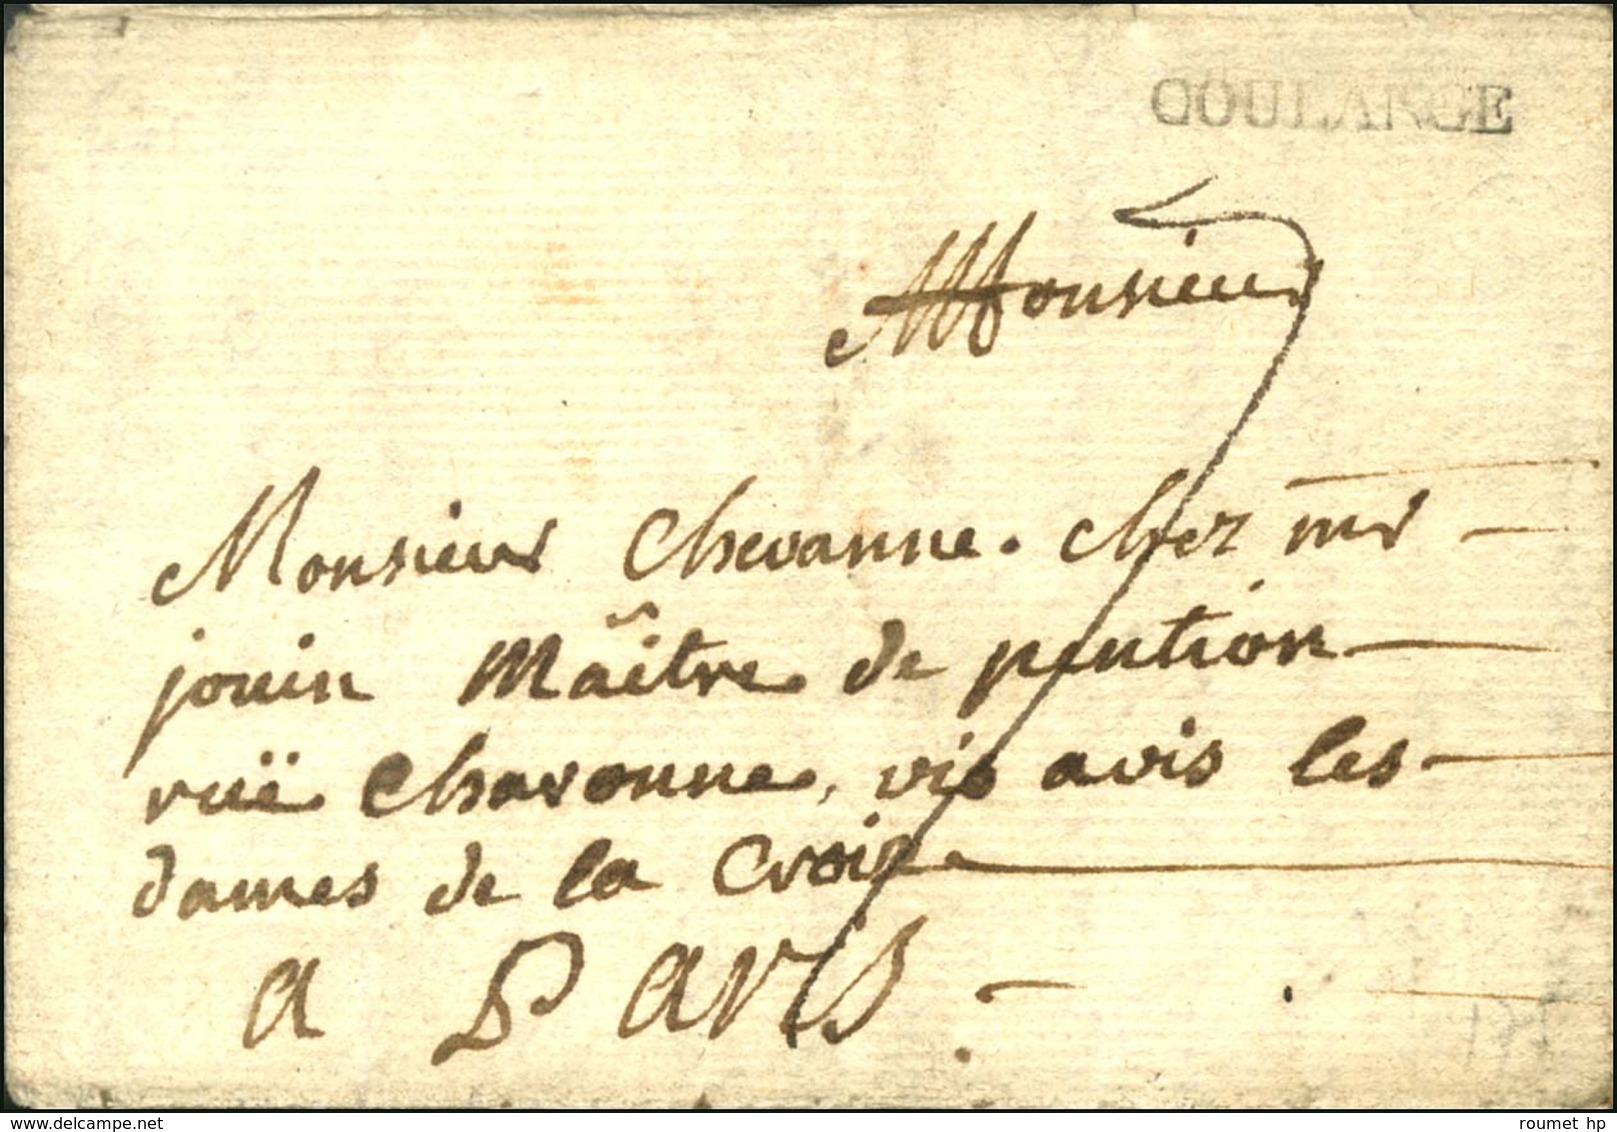 COULANGE
Monsieur
Monsieur Chevanne. chez mr
jouin Maître de pention
ruë Charonne, vis avis les
dames de la Croix
a Paris.
www.delcampe.net
roumet hp